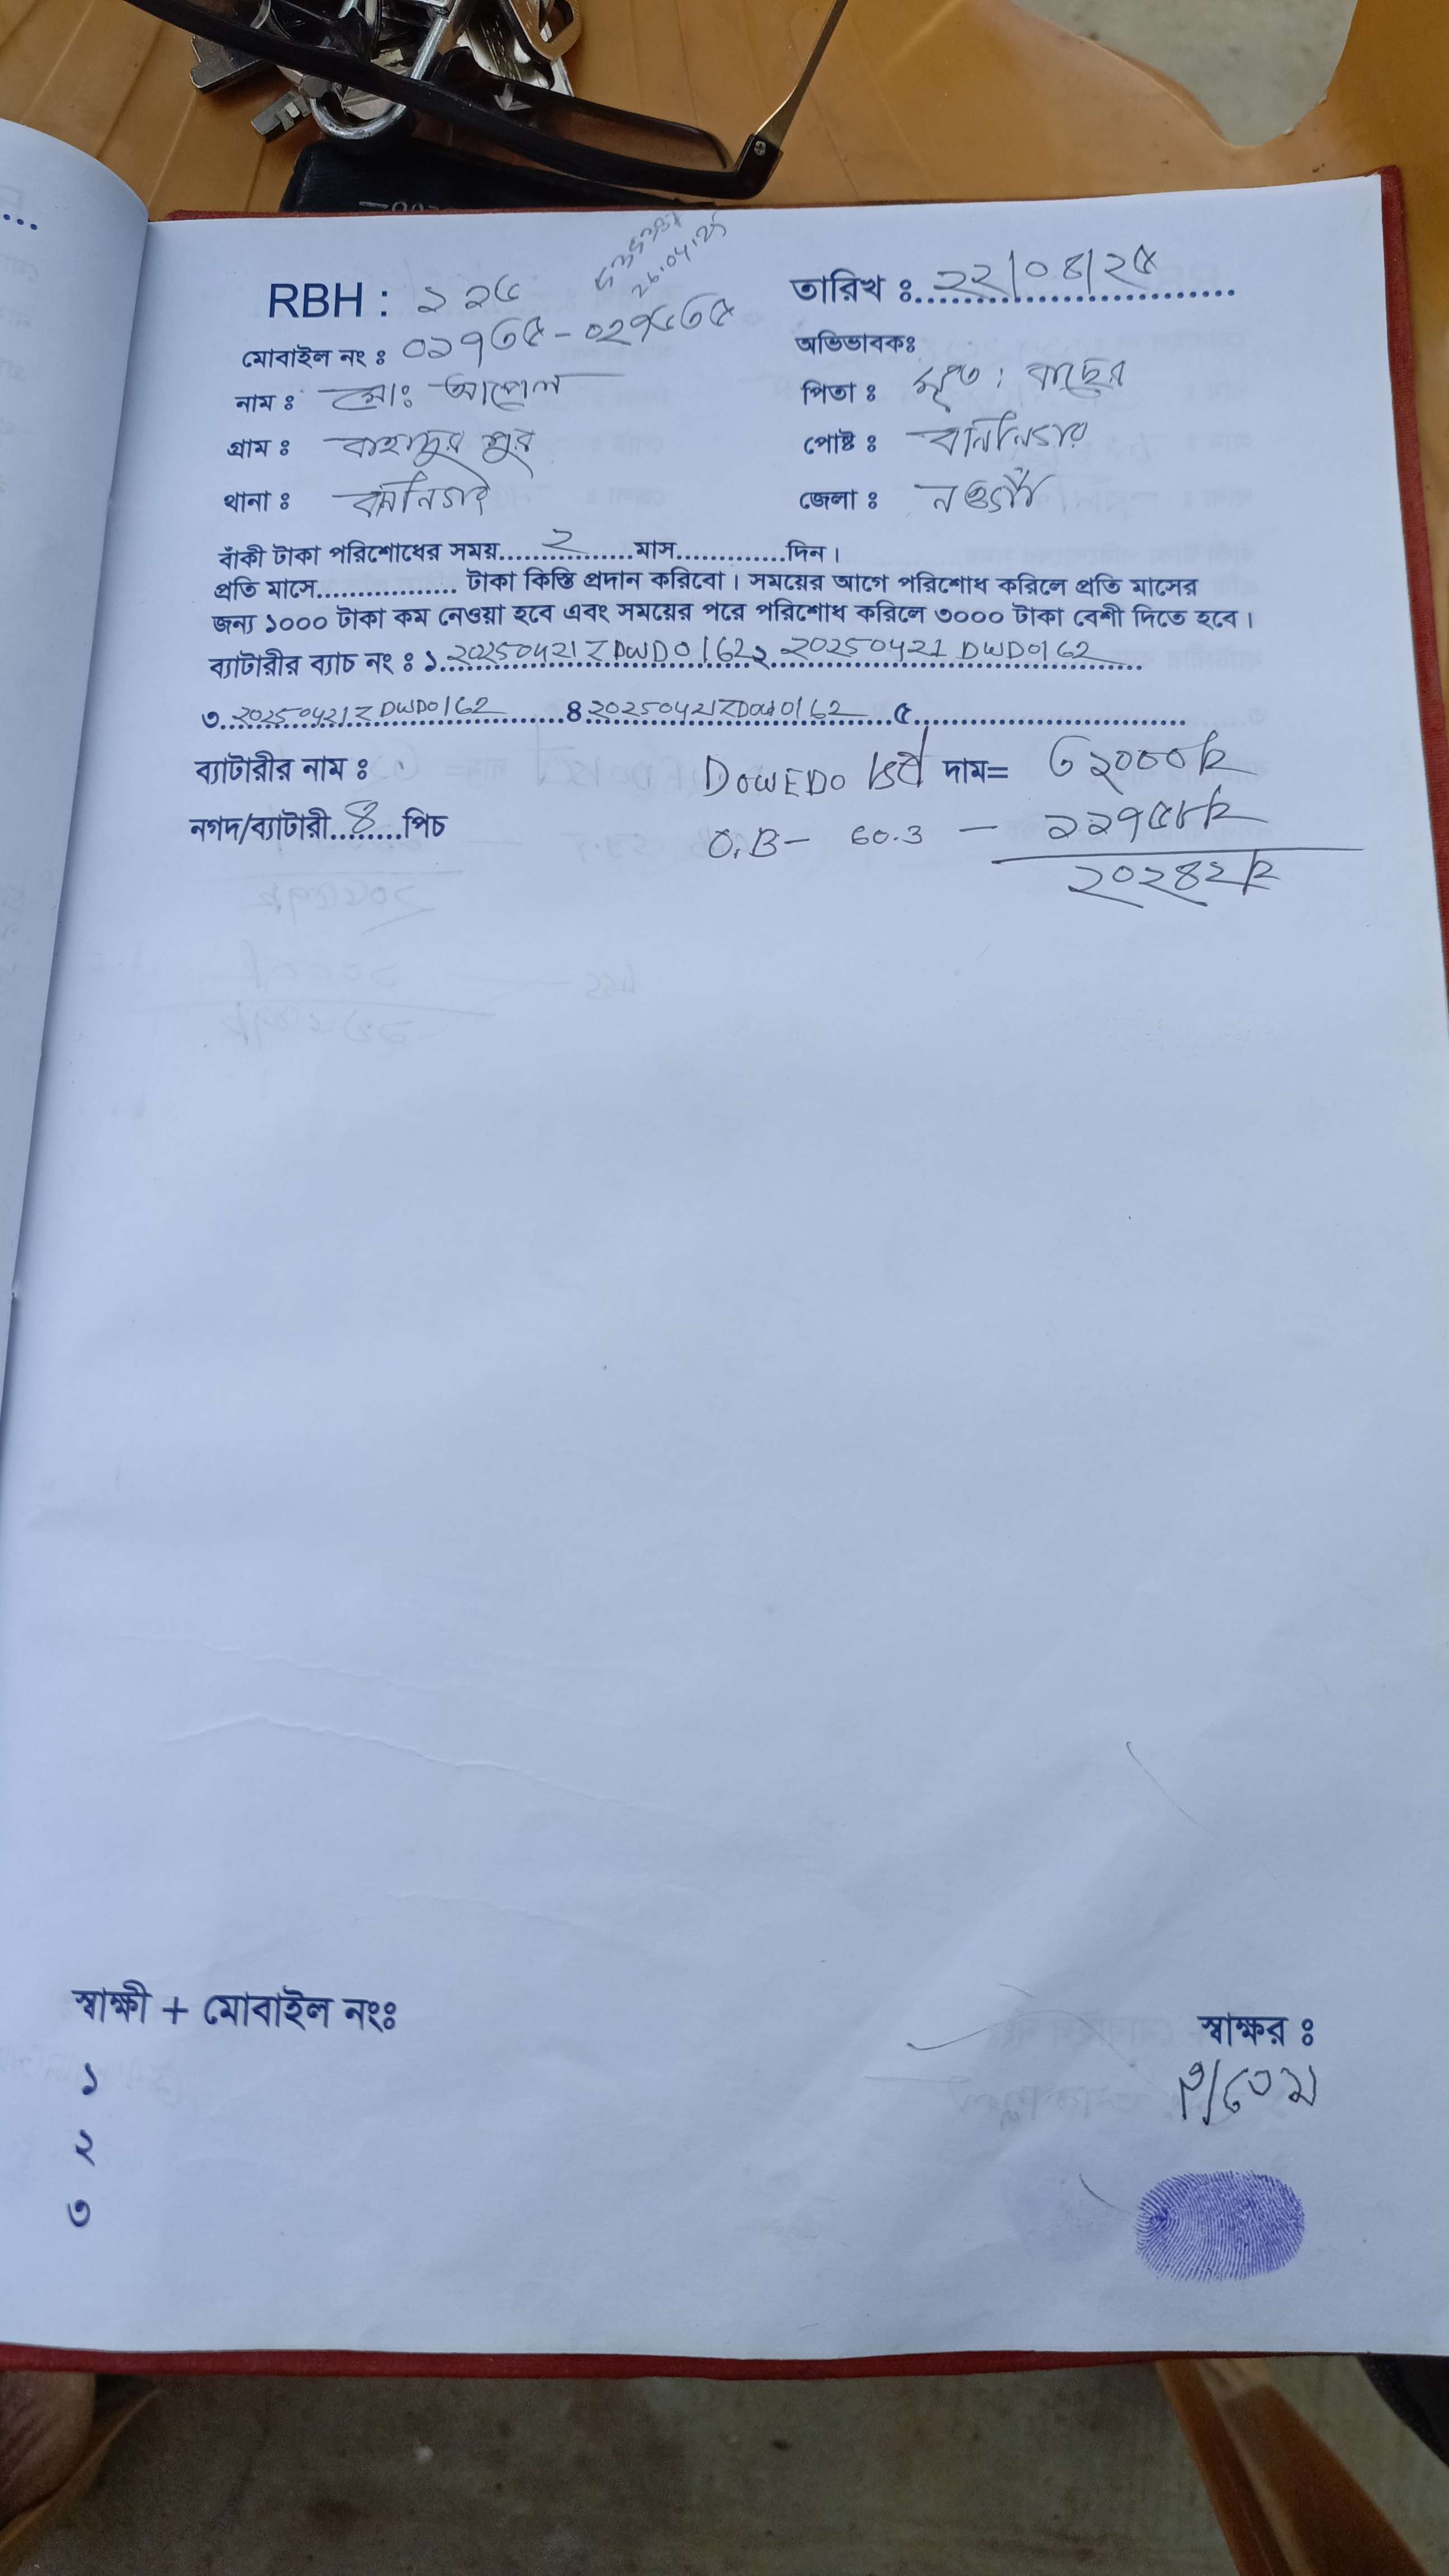 RBH : ১২৬
তারিখ : ২২/০৪/২৫
26.04.25
মোবাইল নং : ০১৭৩৫-০২৭৬৩৫
অভিভাবকঃ
নাম : মোঃ আপেল
পিতা : মৃত: বাছের
গ্রাম : বাহাদুর পুর
পোষ্ট :
থানা :
জেলা : নওগাঁ
বাঁকী টাকা পরিশোধের সময়......২......মাস.............দিন।
প্রতি মাসে................. টাকা কিস্তি প্রদান করিবো। সময়ের আগে পরিশোধ করিলে প্রতি মাসের
জন্য ১০০০ টাকা কম নেওয়া হবে এবং সময়ের পরে পরিশোধ করিলে ৩০০০ টাকা বেশী দিতে হবে।
ব্যাটারীর ব্যাচ নং : ১. 20250421ZDWD0162 ২ 20250421DWD0162
৩. 20250421ZDWD0162 ৪ 20250421ZDWD0162 ৫
ব্যাটারীর নাম : DOWEDO দাম= ৩২০০০
নগদ/ব্যাটারী....৪....পিচ O.B - 60.3 - ১১৭৫৮
২০২৪২
স্বাক্ষী + মোবাইল নংঃ
স্বাক্ষর :
১
২
৩